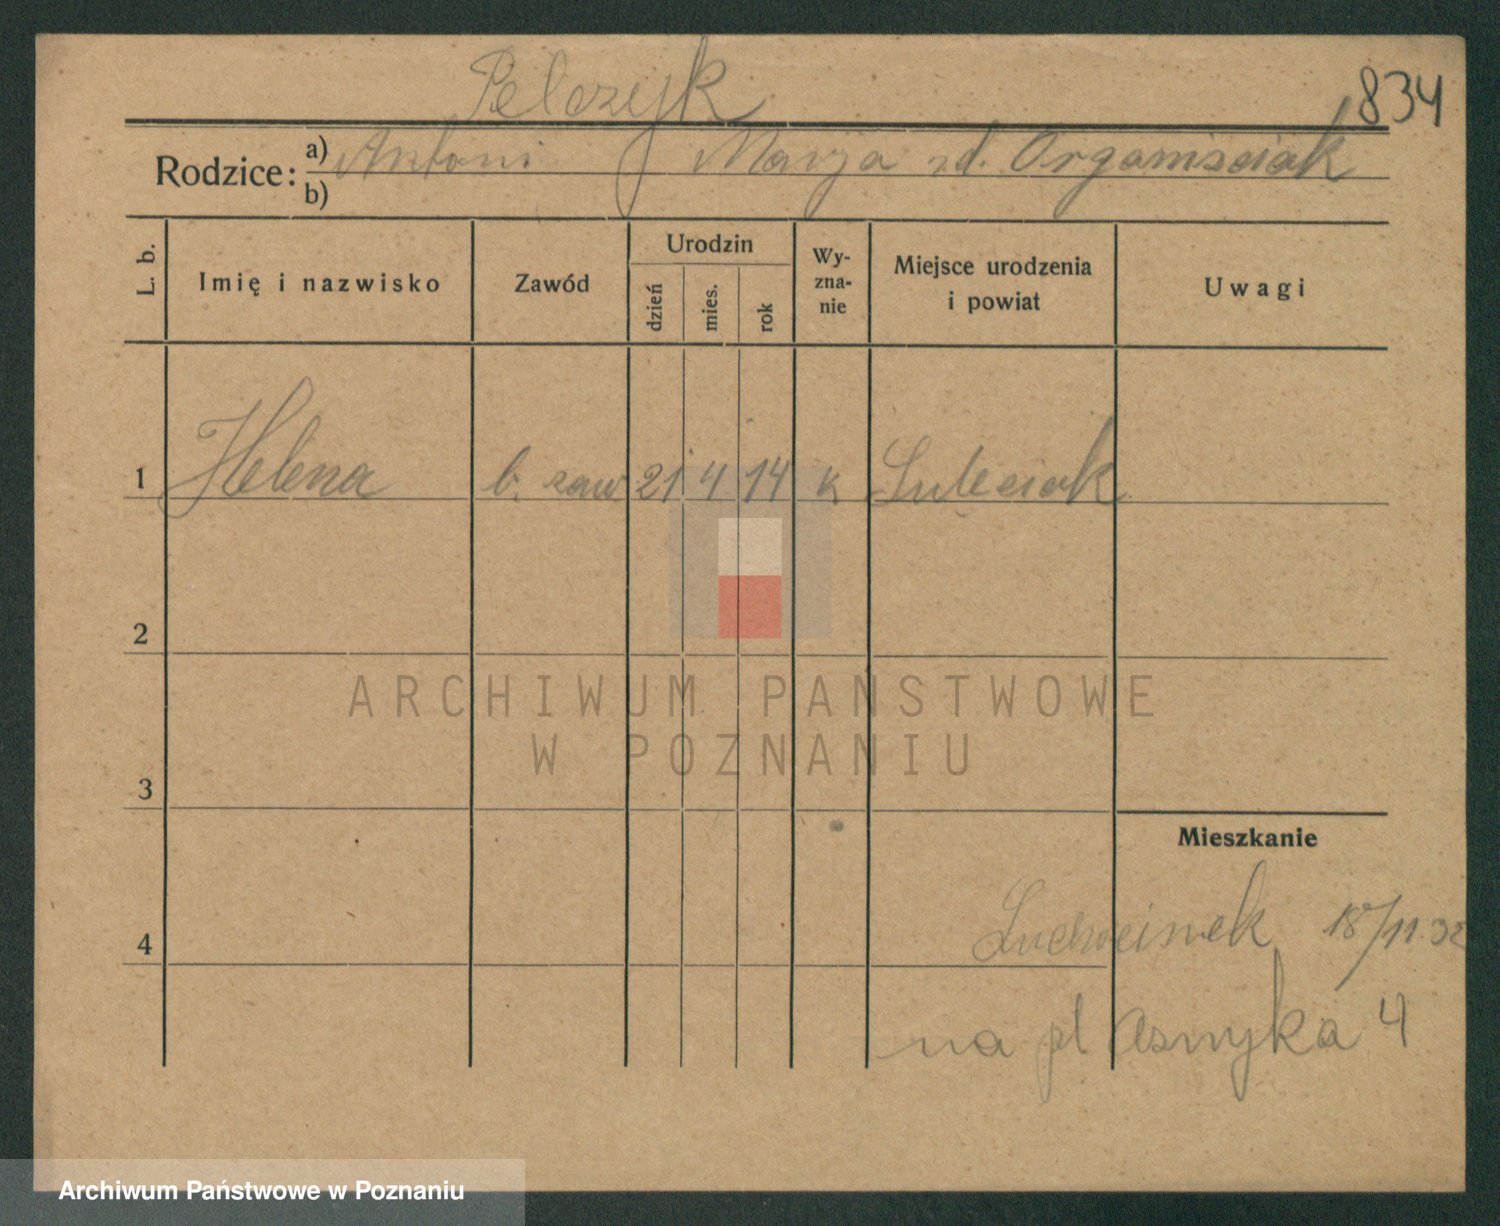 Pelczyk
834
Rodzice: a) Antoni Marja zd. Organiściak
b)
L. b. Imię i nazwisko Zawód Urodzin dzień mies. rok Wy-zna-nie Miejsce urodzenia i powiat Uwagi
1 Helena b. zaw 21 4 14 k
2
ARCHIWUM PAŃSTWOWE
W POZNANIU
3
Mieszkanie
4 18/11.32
na pl Asnyka 4
Archiwum Państwowe w Poznaniu